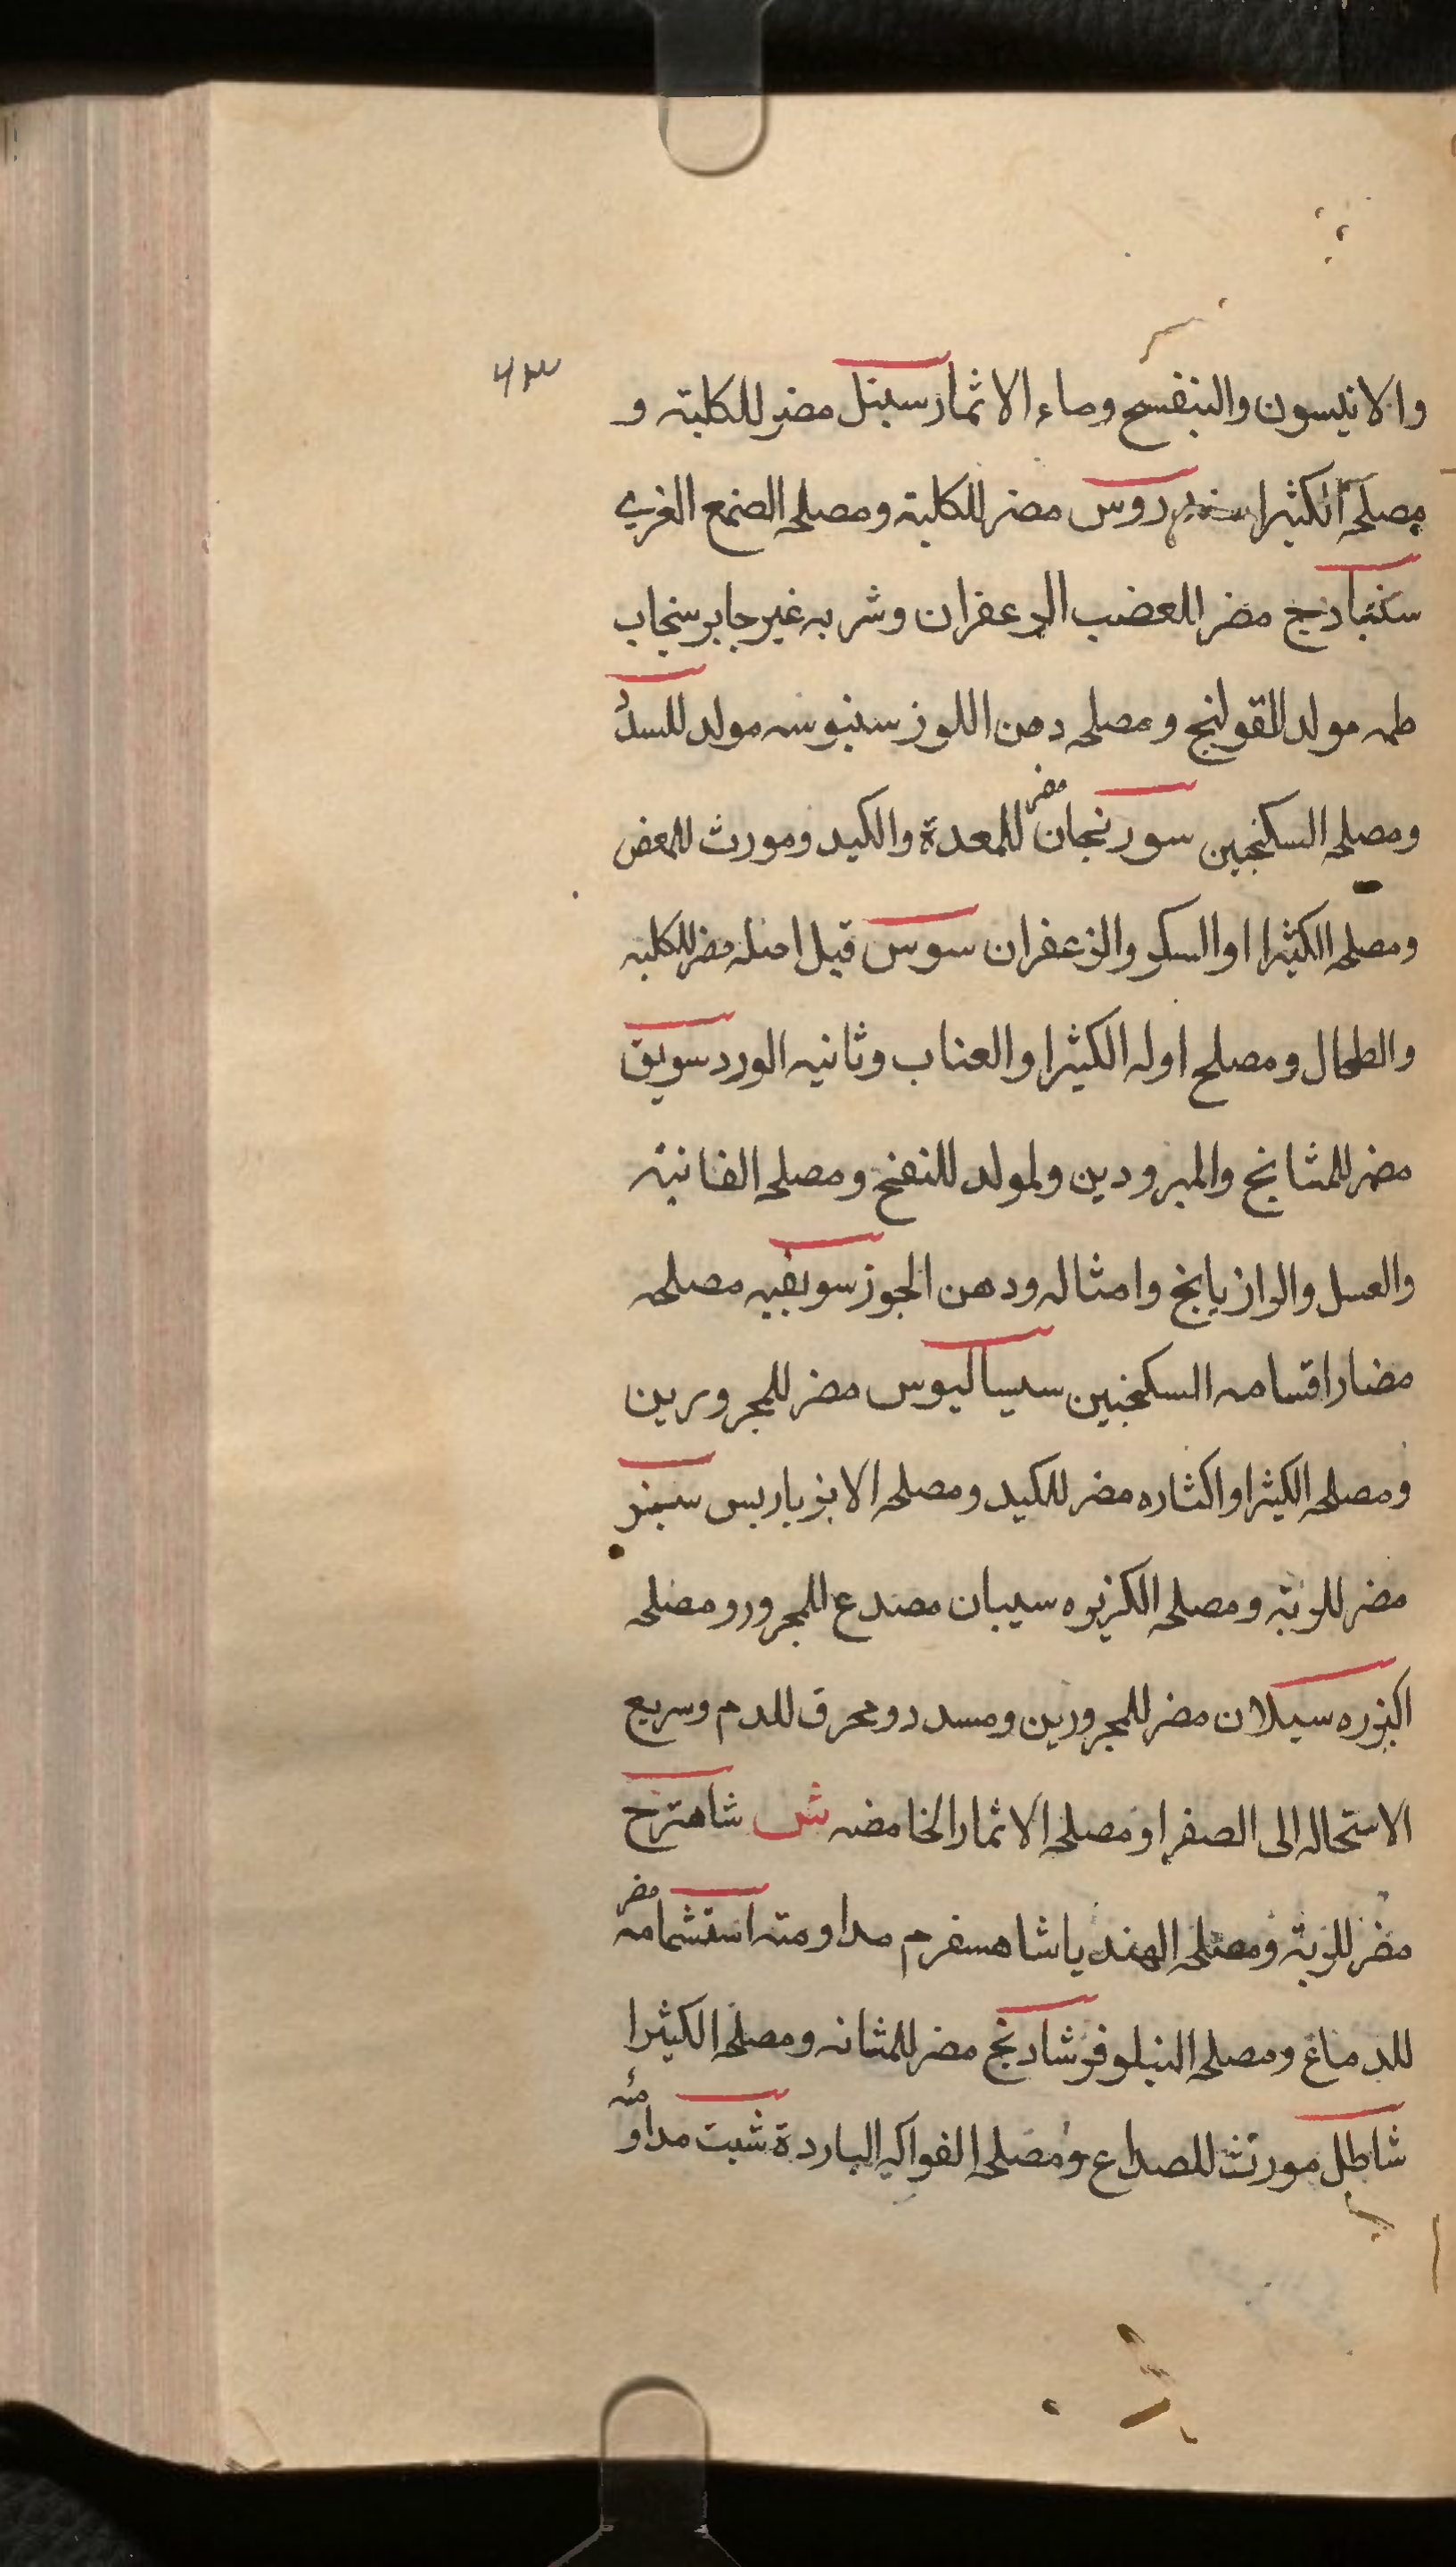 ٦٣
والانيسون والبنفسج وماء الاثمار سنبل مضر للكلية و
مصلحه الكثيرا سندروس مضر للكلية ومصلحه الصمغ الغربي
سنبادج مضر للعضب الزعفران وشربه غير جابر سنجاب
طمه مولد للقولنج ومصلحه دهن اللوز سنبوسه مولد للسدد
ومصلحه السكنجبين سورنجان مضر للمعدة والكبد ومورث للمعض
ومصلحه الكثيرا او السكر والزعفران سوس قيل اصله مضر للكلية
والطحال ومصلح اوله الكثيرا والعناب وثانيه الورد سويق
مضر للمشانخ والمبرودين ولمولد للنفخ ومصلحه الفانيد
والعسل والرازيانج وامثاله ودهن الجوز سويقيه مصلحه
مضار اقسامه السكنجبين سيساليوس مضر للمحرورين
ومصلحه الكثيرا واكثاره مضر للكبد ومصلحه الانبرباريس
مضر للرية ومصلحه الكزبره سيبان مصدع للمحرور ومصلحه
الكزبره سيلان مضر للمحرورين ومسدد ومحرق للدم وسريع
الاستحاله الى الصفرا ومصلحه الاثمار الحامضه ش شاهترج
مضر للرية ومصلحه الهندبا شاهسفرم مداومته استشمامه مضر
للدماغ ومصلحه النيلوفر شادنج مضر للمثانه ومصلحه الكثيرا
شاطل مورث للصداع ومصلحه الفواكه الباردة شبت مداومته